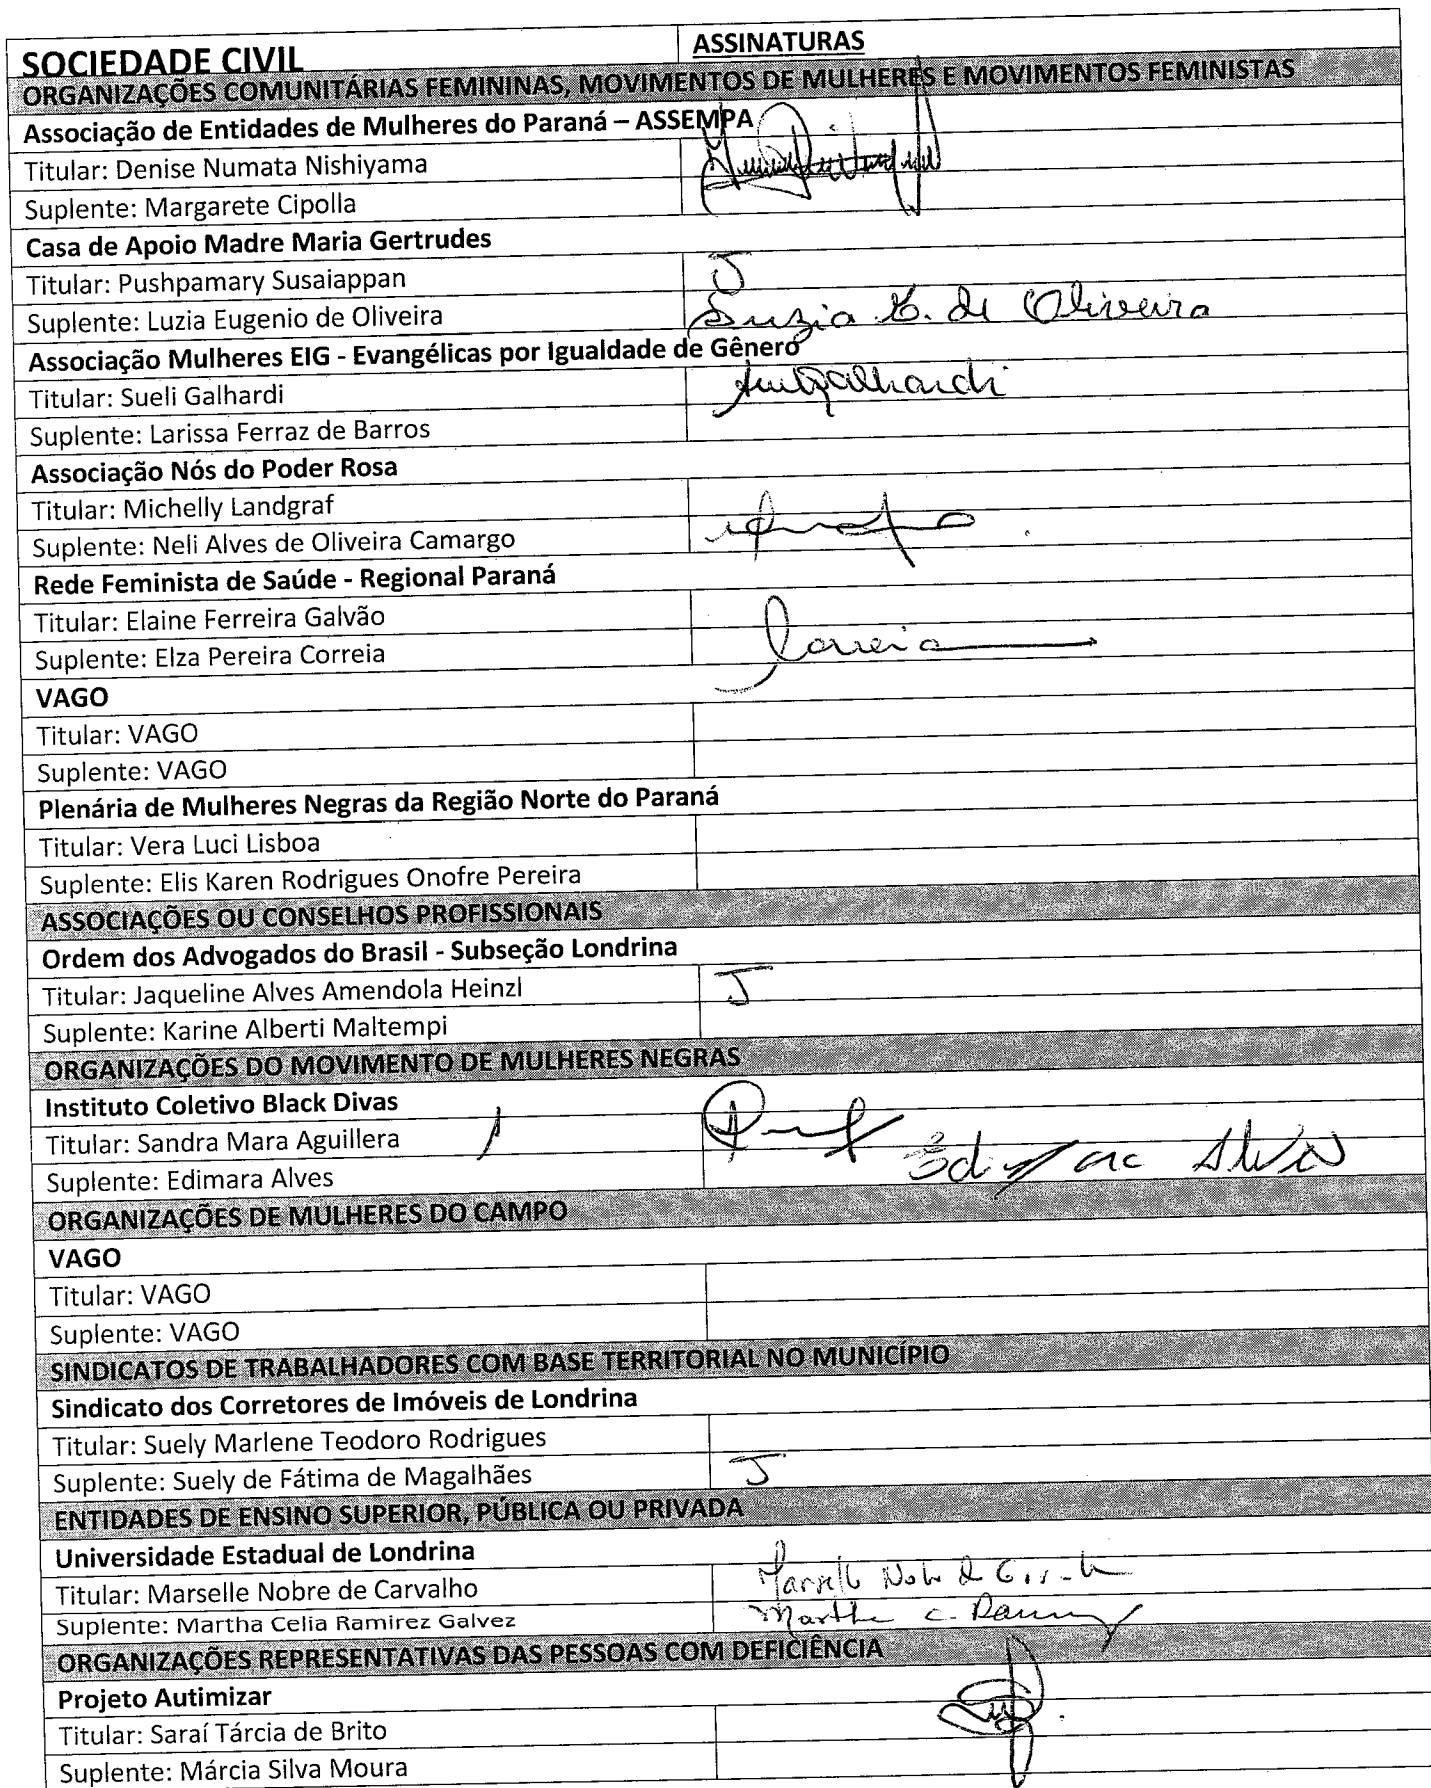 SOCIEDADE CIVIL ASSINATURAS
ORGANIZAÇÕES COMUNITÁRIAS FEMININAS, MOVIMENTOS DE MULHERES E MOVIMENTOS FEMINISTAS
Associação de Entidades de Mulheres do Paraná – ASSEMPA
Titular: Denise Numata Nishiyama
Suplente: Margarete Cipolla
Casa de Apoio Madre Maria Gertrudes
Titular: Pushpamary Susaiappan J
Suplente: Luzia Eugenio de Oliveira Luzia E. de Oliveira
Associação Mulheres EIG - Evangélicas por Igualdade de Gênero
Titular: Sueli Galhardi Galhardi
Suplente: Larissa Ferraz de Barros
Associação Nós do Poder Rosa
Titular: Michelly Landgraf
Suplente: Neli Alves de Oliveira Camargo
Rede Feminista de Saúde - Regional Paraná
Titular: Elaine Ferreira Galvão
Suplente: Elza Pereira Correia Correia
VAGO
Titular: VAGO
Suplente: VAGO
Plenária de Mulheres Negras da Região Norte do Paraná
Titular: Vera Luci Lisboa
Suplente: Elis Karen Rodrigues Onofre Pereira
ASSOCIAÇÕES OU CONSELHOS PROFISSIONAIS
Ordem dos Advogados do Brasil - Subseção Londrina
Titular: Jaqueline Alves Amendola Heinzl J
Suplente: Karine Alberti Maltempi
ORGANIZAÇÕES DO MOVIMENTO DE MULHERES NEGRAS
Instituto Coletivo Black Divas
Titular: Sandra Mara Aguillera
Suplente: Edimara Alves Edimara Alves
ORGANIZAÇÕES DE MULHERES DO CAMPO
VAGO
Titular: VAGO
Suplente: VAGO
SINDICATOS DE TRABALHADORES COM BASE TERRITORIAL NO MUNICÍPIO
Sindicato dos Corretores de Imóveis de Londrina
Titular: Suely Marlene Teodoro Rodrigues
Suplente: Suely de Fátima de Magalhães J
ENTIDADES DE ENSINO SUPERIOR, PÚBLICA OU PRIVADA
Universidade Estadual de Londrina
Titular: Marselle Nobre de Carvalho Marselle Nobre de Carvalho
Suplente: Martha Celia Ramirez Galvez Martha C. Ramirez
ORGANIZAÇÕES REPRESENTATIVAS DAS PESSOAS COM DEFICIÊNCIA
Projeto Autimizar
Titular: Saraí Tárcia de Brito
Suplente: Márcia Silva Moura